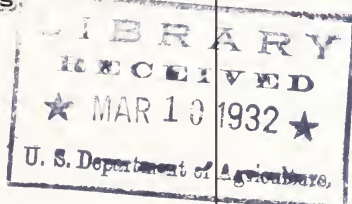 LIBRARY
RECEIVED
★ MAR 10 1932 ★
U. S. Department of Agriculture,